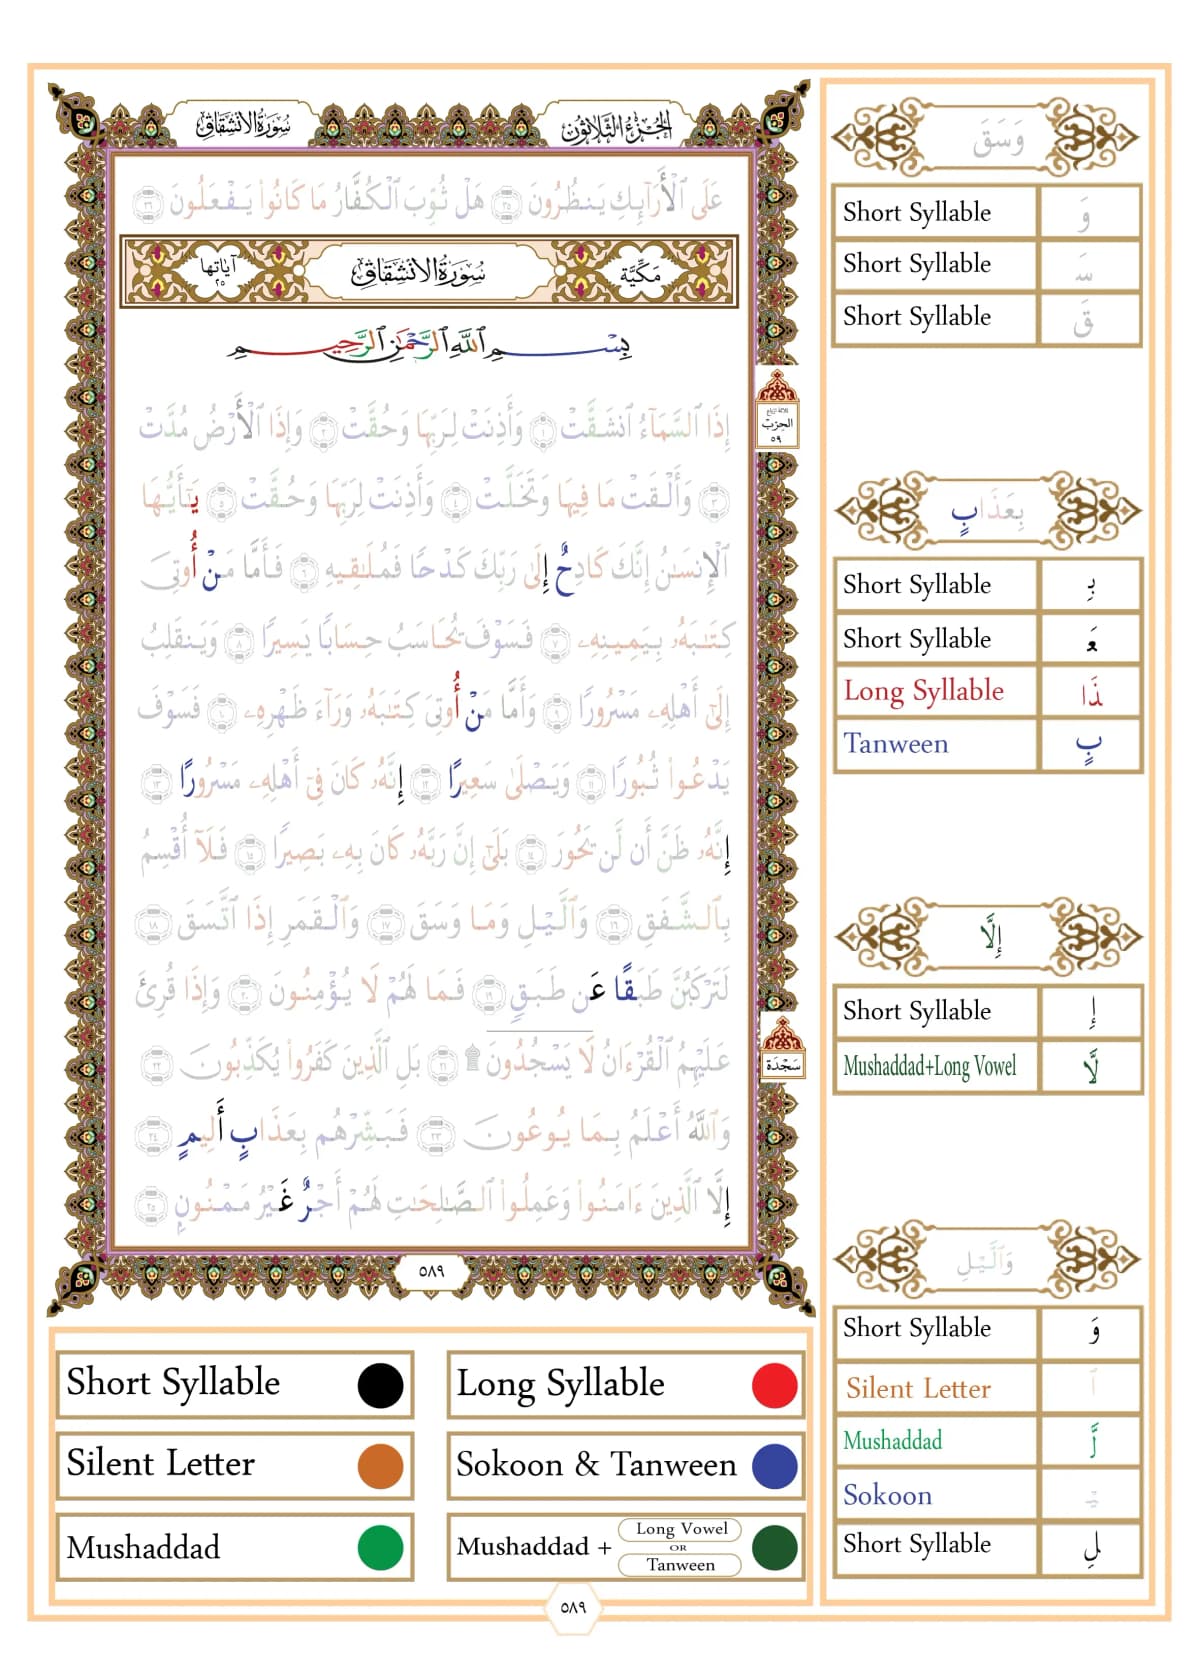 سُورَةُ الانشِقَاقِ
الجُزْءُ الثَّلَاثُونَ
عَلَى ٱلْأَرَآئِكِ يَنظُرُونَ ٣٥ هَلْ ثُوِّبَ ٱلْكُفَّارُ مَا كَانُوا۟ يَفْعَلُونَ ٣٦
مَكِّيَّة
سُورَةُ الانشِقَاقِ
آيَاتها ٢٥
بِسْمِ ٱللَّهِ ٱلرَّحْمَٰنِ ٱلرَّحِيمِ
إِذَا ٱلسَّمَآءُ ٱنشَقَّتْ ١ وَأَذِنَتْ لِرَبِّهَا وَحُقَّتْ ٢ وَإِذَا ٱلْأَرْضُ مُدَّتْ
٣ وَأَلْقَتْ مَا فِيهَا وَتَخَلَّتْ ٤ وَأَذِنَتْ لِرَبِّهَا وَحُقَّتْ ٥ يَٰٓأَيُّهَا
ٱلْإِنسَٰنُ إِنَّكَ كَادِحٌ إِلَىٰ رَبِّكَ كَدْحًا فَمُلَٰقِيهِ ٦ فَأَمَّا مَنْ أُوتِىَ
كِتَٰبَهُۥ بِيَمِينِهِۦ ٧ فَسَوْفَ يُحَاسَبُ حِسَابًا يَسِيرًا ٨ وَيَنقَلِبُ
إِلَىٰٓ أَهْلِهِۦ مَسْرُورًا ٩ وَأَمَّا مَنْ أُوتِىَ كِتَٰبَهُۥ وَرَآءَ ظَهْرِهِۦ ١٠ فَسَوْفَ
يَدْعُوا۟ ثُبُورًا ١١ وَيَصْلَىٰ سَعِيرًا ١٢ إِنَّهُۥ كَانَ فِىٓ أَهْلِهِۦ مَسْرُورًا ١٣
إِنَّهُۥ ظَنَّ أَن لَّن يَحُورَ ١٤ بَلَىٰٓ إِنَّ رَبَّهُۥ كَانَ بِهِۦ بَصِيرًا ١٥ فَلَآ أُقْسِمُ
بِٱلشَّفَقِ ١٦ وَٱلَّيْلِ وَمَا وَسَقَ ١٧ وَٱلْقَمَرِ إِذَا ٱتَّسَقَ ١٨
لَتَرْكَبُنَّ طَبَقًا عَن طَبَقٍ ١٩ فَمَا لَهُمْ لَا يُؤْمِنُونَ ٢٠ وَإِذَا قُرِئَ
عَلَيْهِمُ ٱلْقُرْءَانُ لَا يَسْجُدُونَ ۩ ٢١ بَلِ ٱلَّذِينَ كَفَرُوا۟ يُكَذِّبُونَ ٢٢
وَٱللَّهُ أَعْلَمُ بِمَا يُوعُونَ ٢٣ فَبَشِّرْهُم بِعَذَابٍ أَلِيمٍ ٢٤
إِلَّا ٱلَّذِينَ ءَامَنُوا۟ وَعَمِلُوا۟ ٱلصَّٰلِحَٰتِ لَهُمْ أَجْرٌ غَيْرُ مَمْنُونٍۭ ٢٥
٥٨٩
ثلاثة ارباع
الحزب
٥٩
سَجْدَة
وَسَقَ
Short Syllable وَ
Short Syllable سَ
Short Syllable قَ
بِعَذَابٍ
Short Syllable بِ
Short Syllable عَ
Long Syllable ذَا
Tanween بٍ
إِلَّا
Short Syllable إِ
Mushaddad+Long Vowel لَّا
وَٱلَّيْلِ
Short Syllable وَ
Silent Letter ٱ
Mushaddad لَّ
Sokoon يْ
Short Syllable لِ
Short Syllable
Long Syllable
Silent Letter
Sokoon & Tanween
Mushaddad
Mushaddad + Long Vowel OR Tanween
٥٨٩